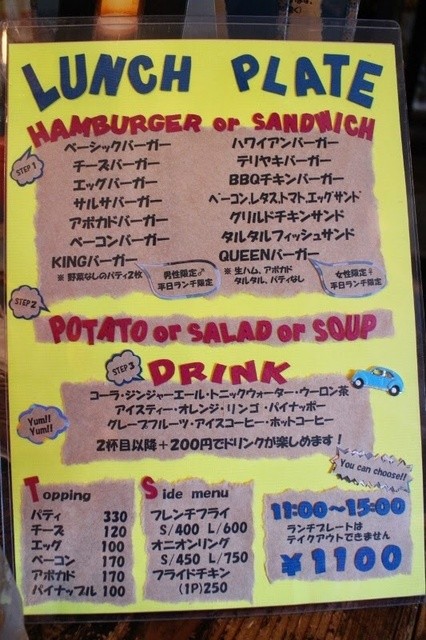 LUNCH PLATE
HAMBURGER or SANDWICH
STEP 1
ベーシックバーガー
チーズバーガー
エッグバーガー
サルサバーガー
アボカドバーガー
ベーコンバーガー
KINGバーガー
※ 野菜なしのパティ2枚
男性限定♂
平日ランチ限定
ハワイアンバーガー
テリヤキバーガー
BBQチキンバーガー
ベーコン,レタス,トマト,エッグサンド
グリルドチキンサンド
タルタルフィッシュサンド
QUEENバーガー
※ 生ハム、アボカド
タルタル、パティなし
女性限定♀
平日ランチ限定
STEP 2
POTATO or SALAD or SOUP
STEP 3
DRINK
コーラ・ジンジャーエール・トニックウォーター・ウーロン茶
アイスティー・オレンジ・リンゴ・パイナッポー
グレープフルーツ・アイスコーヒー・ホットコーヒー
2杯目以降+200円でドリンクが楽しめます!
Yum!!
Yum!!
You can choose!!
Topping
パティ 330
チーズ 120
エッグ 100
ベーコン 170
アボカド 170
パイナップル 100
Side menu
フレンチフライ
S/400 L/600
オニオンリング
S/450 L/750
フライドチキン
(1P)250
11:00~15:00
ランチプレートは
テイクアウトできません
¥1100